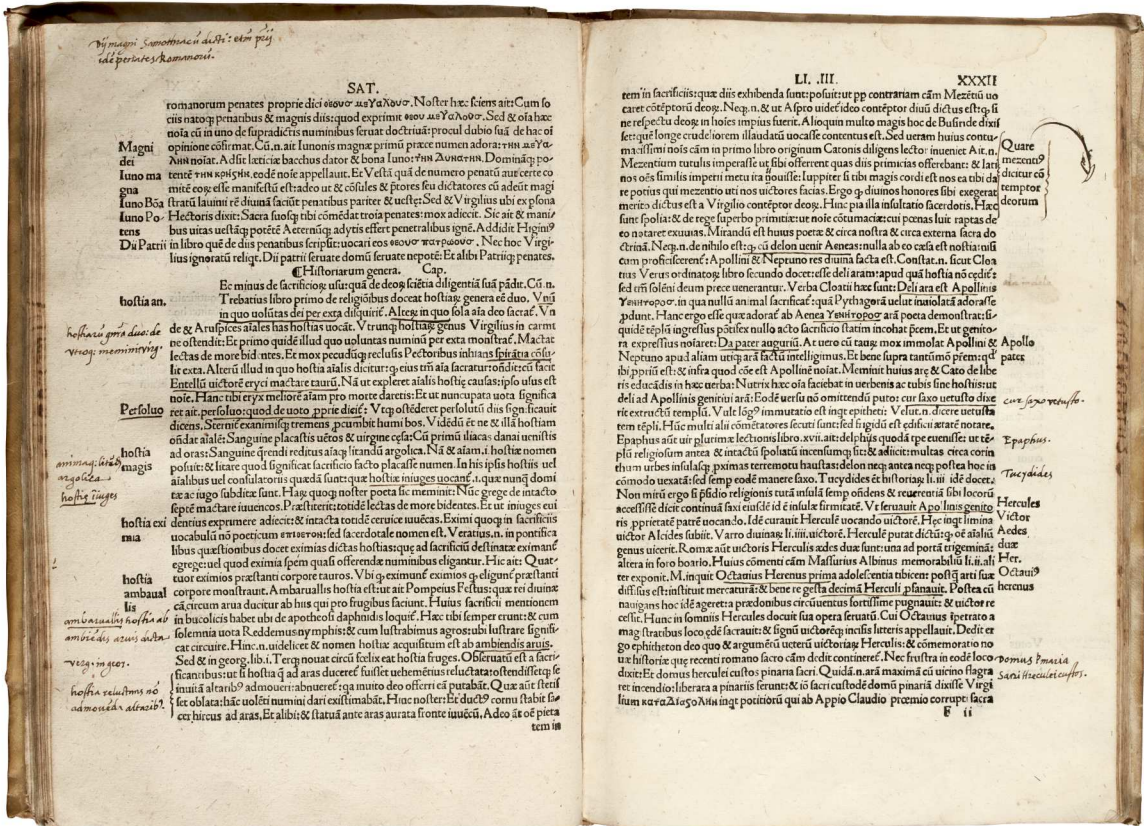 Dij magni Samothracũ dicti: etiã prij
idẽ penates Romanorũ.
SAT.
romanorum penates proprie dici θεουσ μεγαλουσ. Noster hæc sciens ait: Cum so
ciis natoqꝫ penatibus & magnis diis: quod exprimit θεου μεγαλουσ. Sed & oĩa hæc
noĩa cũ in uno de supradictis numinibus seruat doctriuã: procul dubio suã de hac oĩ
opinione cõfirmat. Cũ.n. ait Iunonis magnæ primũ præce numen adora: την μεγα
λην noĩat. Adsit læticiæ bacchus dator & bona Iuno: την Dominãqꝫ po
tentẽ eodẽ noĩe appellauit. Et Vestã quã de numero penatũ aut certe co
mitẽ eoꝝ esse manifestũ est: adeo ut & cõsules & p̃tores seu dictatores cũ adeũt magi
stratũ lauini rẽ diuinã faciũt penatibus pariter & uestę: Sed & Virgilius ubi ex psona
Hectoris dixit: Sacra suosqꝫ tibi cõmẽdat troia penates: mox adiecit. Sic ait & mani/
bus uitas uestãqꝫ potẽtẽ Aeternũqꝫ adytis effert penetralibus ignẽ. Addidit Higiniꝰ
in libro quẽ de diis penatibus scripsit: uocari eos θεουσ πατρωουσ. Nec hoc Virgi/
lius ignoratũ reliqt. Dii patrii seruate domũ seruate nepotẽ: Et alibi Patriiqꝫ penates.
Magni
dei
Iuno ma
gna
Iuno Bõa
Iuno Po/
tens
Dii Patrii
¶ Historiarum genera. Cap.
Ec minus de sacrificioꝝ usu: quã de deoꝝ sciẽtia diligentiã suã pãdit. Cũ.n.
Trebatius libro primo de religiõibus doceat hostiaꝝ genera eẽ duo. Vnũ
in quo uolũtas dei per exta disquirit̃. Alteꝝ in quo sola aĩa deo sacrat̃. Vn
de & Aruspices aĩales has hostias uocãt. Vtrunqꝫ hostiaꝝ genus Virgilius in carmĩ
ne ostendit: Et primo quidẽ illud quo uoluntas numinũ per exta monstrat̃. Mactat
lectas de more bidentes. Et mox pecudũqꝫ reclusis Pectoribus inhians spirãtia cõsu/
lit exta. Alterũ illud in quo hostia aĩalis dicitur: qꝫ eius tm̃ aĩa sacratur: õndit: cũ facit
Entellũ uictorẽ eryci mactare taurũ. Nã ut expleret aĩalis hostię causas: ipso usus est
noĩe. Hanc tibi eryx meliorẽ aĩam pro morte daretis: Et ut nuncupata uota significa
ret ait. persoluo: quod de uoto ,pprie dicit̃. Vtqꝫ ostẽderet persolutũ diis significauit
dicens. Sternit̃ exanimisqꝫ tremens ,pcumbit humi bos. Vidẽdũ ẽt ne & illã hostiam
õndat aĩalẽ: Sanguine placastis uẽtos & uirgine cęsa: Cũ primũ iliacas danai uenistis
ad oras: Sanguine q̃rendi reditus aĩaqꝫ litandũ argolica. Nã & aĩam.i. hostiæ nomen
posuit: & litare quod significat sacrificio facto placasse numen. In his ipsis hostiis uel
aĩalibus uel consultoriis quædã sunt: quæ hostiæ iniuges uocant̃ .i. quæ nunqꝫ domi
tæ ac iugo subditæ sunt. Haꝝ quoqꝫ noster poeta sic meminit: Nũc grege de intacto
septẽ mactare iuuencos. Præstiterit: totidẽ lectas de more bidentes. Et ut iniuges eui
dentius exprimere adiecit: & intacta totidẽ ceruice iuuẽcas. Eximi quoqꝫ in sacrificiis
uocabulũ nõ poeticum επιθετον: sed sacerdotale nomen est. Veratius.n. in pontifica
libus quæstionibus docet eximias dictas hostias: quę ad sacrificiũ destinatæ eximant̃
egrege: uel quod eximia spẽm quasi offerendæ numinibus eligantur. Hic ait: Quat/
tuor eximios præstanti corpore tauros. Vbi qꝫ eximunt̃ eximios qꝫ eligunt̃ præstanti
corpore monstrauit. Ambarualis hostia est: ut ait Pompeius Festus: quæ rei diuinæ
cã circum arua ducitur ab hiis qui pro frugibus faciunt. Huius sacrificii mentionem
in bucolicis habet ubi de apotheosi daphnidis loquit̃. Hæc tibi semper erunt: & cum
solemnia uota Reddemus nymphis: & cum lustrabimus agros: ubi lustrare signifi/
cat circuire. Hinc.n. uidelicet & nomen hostiæ acquisitum est ab ambiendis aruis.
Sed & in georg. lib.i. Terqꝫ nouat circũ fœlix eat hostia fruges. Obseruatũ est a sacri/
ficantibus: ut si hostia q̃ ad aras duceret̃ fuisset uehemẽtius reluctata: ostendissetqꝫ se
inuitã altaribꝰ admoueri: abnueret̃: qa inuito deo offerri eã putabãt. Quæ aũt stetis
set oblata: hãc uolẽti numini dari existimabãt. Hinc noster: Et ductꝰ cornu stabit sa/
cer hircus ad aras. Et alibi: & statuã ante aras aurata fronte iuuẽcũ. Adeo aũt oẽ pieta
tem in
hostia an.
hostiarũ gñra duo: de
vtroqꝫ meminit virg.
Persoluo
hostia
magis
animaqꝫ litãdũ
argolica
hostię iniuges
hostia exi
mia
hostia
ambaual
lis
ambarualis hostia ab
ambiẽdis aruis dicta
virg. in geor.
hostia reluctans nõ
admouẽda altaribꝰ.
LI. .III. XXXII
tem in sacrificiis: quæ diis exhibenda sunt: posuit: ut pp contrariam cãm Mezẽtiũ uo
caret cõtẽptorũ deoꝝ. Neqꝫ.n. & ut Aspro uidet̃ ideo contẽptor diuũ dictus est: qꝫ si
ne respectu deoꝝ in hoĩes impius fuerit. Alioquin multo magis hoc de Busiride dixis
set: quẽ longe crudeliorem illaudatũ uocasse contentus est. Sed ueram huius contu/
macissimi noĩs cãm in primo libro originum Catonis diligens lector inueniet Ait.n.
Mezentium rutulis imperasse ut sibi offerrent quas diis primicias offerebant: & lati
nos oẽs similis imperii metu ita uouisse: Iuppiter si tibi magis cordi est nos ea tibi da
re potius qui mezentio uti nos uictores facias. Ergo qꝫ diuinos honores sibi exegerat
merito dictus est a Virgilio contẽptor deoꝝ. Hinc pia illa insultatio sacerdotis. Hæc
sunt spolia: & de rege superbo primitiæ: ut noĩe cõtumaciæ: cui pœnas luit raptas de
eo notaret exuuias. Mirandũ est huius poetæ & circa nostra & circa externa sacra do
ctrinã. Neqꝫ.n. de nihilo est: qꝫ cũ delon uenit Aeneas: nulla ab eo cæsa est hostia: nisi
cum proficisceret̃: Apollini & Neptuno res diuina facta est. Constat.n. sicut Cloa
tius Verus ordinatoꝝ libro secundo docet: esse deli aram: apud quã hostia nõ cędit̃:
sed tm̃ solẽni deum prece uenerantur. Verba Cloatii hæc sunt: Deli ara est Apollinis
γενητορος. in qua nullũ animal sacrificat̃: quã Pythagorã uelut inuiolatã adorasse
,pdunt. Hanc ergo esse quæ adorat̃ ab Aenea γενητορος arã poeta demonstrat: si/
quidẽ tẽplũ ingressus põtifex nullo acto sacrificio statim incohat p̃cem. Et ut genito/
ra expressius noĩaret: Da pater auguriũ. At uero cũ tauꝝ mox immolat Apollini &
Neptuno apud aliam utiqꝫ arã factũ intelligimus. Et bene supra tantumõ p̃rem: qd̃
ibi ,ppriũ est: & infra quod cõe est Apollinẽ noĩat. Meminit huius arę & Cato de libe
ris educãdis in hæc uerba: Nutrix hæc oĩa faciebat in uerbenis ac tubis sine hostiis: ut
deli ad Apollinis genitiui arã: Eodẽ uersu nõ omittendũ puto: cur saxo uetusto dixe
rit extructũ templũ. Vult lõgꝰ immutatio est inqt epitheti: Velut.n. dicere uetusta
tem tẽpli. Hũc multi alii cõmẽtatores secuti sunt: sed frigidũ est ędificii ætatẽ notare.
Epaphus aũt uir plurimæ lectionis libro.xvii. ait: delphis quodã tpe euenisse: ut tẽ/
plũ religiosum antea & intactũ spoliatũ incensumqꝫ sit: & adiicit: multas circa corin
thum urbes insulasqꝫ ,pximas terremotu haustas: delon neqꝫ antea neqꝫ postea hoc in
cõmodo uexatã: sed semp eodẽ manere saxo. Tucydides ẽt historiaꝝ li.iii idẽ docet.
Non mirũ ergo si p̃sidio religionis tutã insulã semp õndens & reuerentia sibi locorũ
accessisse dicit continuã saxi eiusdẽ id ẽ insulæ firmitatẽ. Vt seruauit Apollinis genito
ris ,pprietatẽ patrẽ uocando. Idẽ curauit Herculẽ uocando uictorẽ. Hęc inqt limina
uictor Alcides subiit. Varro diuinaꝝ li.iiii. uictorẽ. Herculẽ putat dictũ: qꝫ oẽ aĩaliũ
genus uicerit. Romæ aũt uictoris Herculis ædes duæ sunt: una ad portã trigeminã:
altera in foro boario. Huius cõmenti cãm Massurius Albinus memorabiliũ li.ii. ali
ter exponit. M. inquit Octauius Herenus prima adolescentia tibicen: postqꝫ arti suæ
diffisus est: instituit mercaturã: & bene re gesta decimã Herculi ,pfanauit. Postea cũ
nauigans hoc idẽ ageret: a prædonibus circũuentus fortissime pugnauit: & uictor re
cessit. Hunc in somniis Hercules docuit sua opera seruatũ. Cui Octauius ĩpetrato a
magistratibus loco ędẽ sacrauit: & signũ uictorẽqꝫ incisis litteris appellauit. Dedit er
go ephitheton deo quo & argumẽtũ ueterũ uictoriaꝝ Herculis: & cõmemoratio no
uæ historiæ quę recenti romano sacro cãm dedit contineret̃. Nec frustra in eodẽ loco
dixit: Et domus herculei custos pinaria sacri. Quidã.n. arã maximã cũ uicino flagra
ret incendio: liberata a pinariis ferunt: & iõ sacri custodẽ domũ pinariã dixisse Virgi
lium inqt potitiorũ qui ab Appio Claudio præmio corrupti sacra
F ii
Quare
mezentiꝰ
dicitur cõ
temptor
deorum
Apollo
pater
cur saxo vetusto.
Epaphus.
Tucydides
Hercules
Victor
Aedes
duæ
Her.
Octauiꝰ
herenus
Domus Pinaria
Sacri Herculei custos.